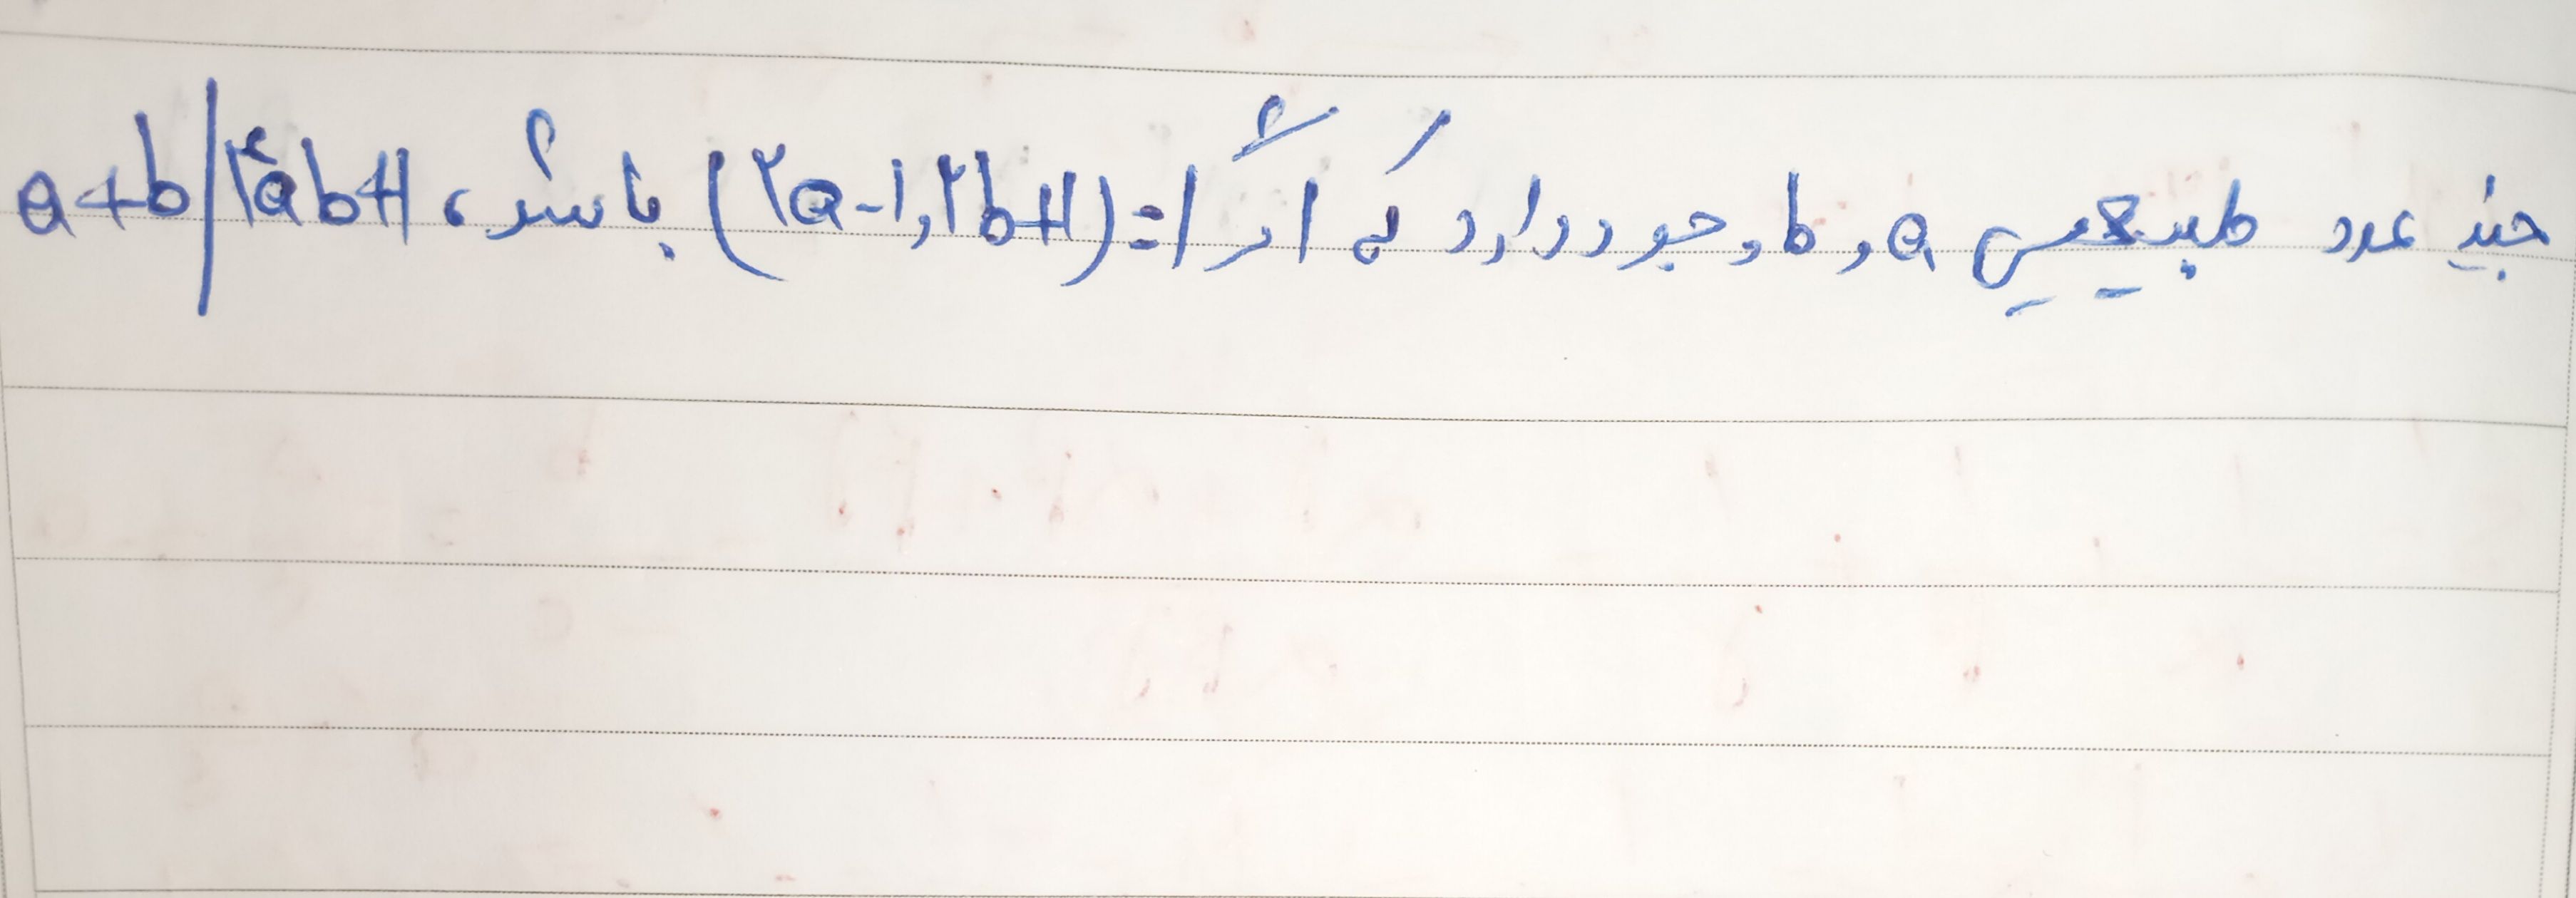 چند عدد طبیعی a و b وجود دارد که اگر (۲a-۱, ۲b+۱)=۱ باشد، a+b|۴ab+۱